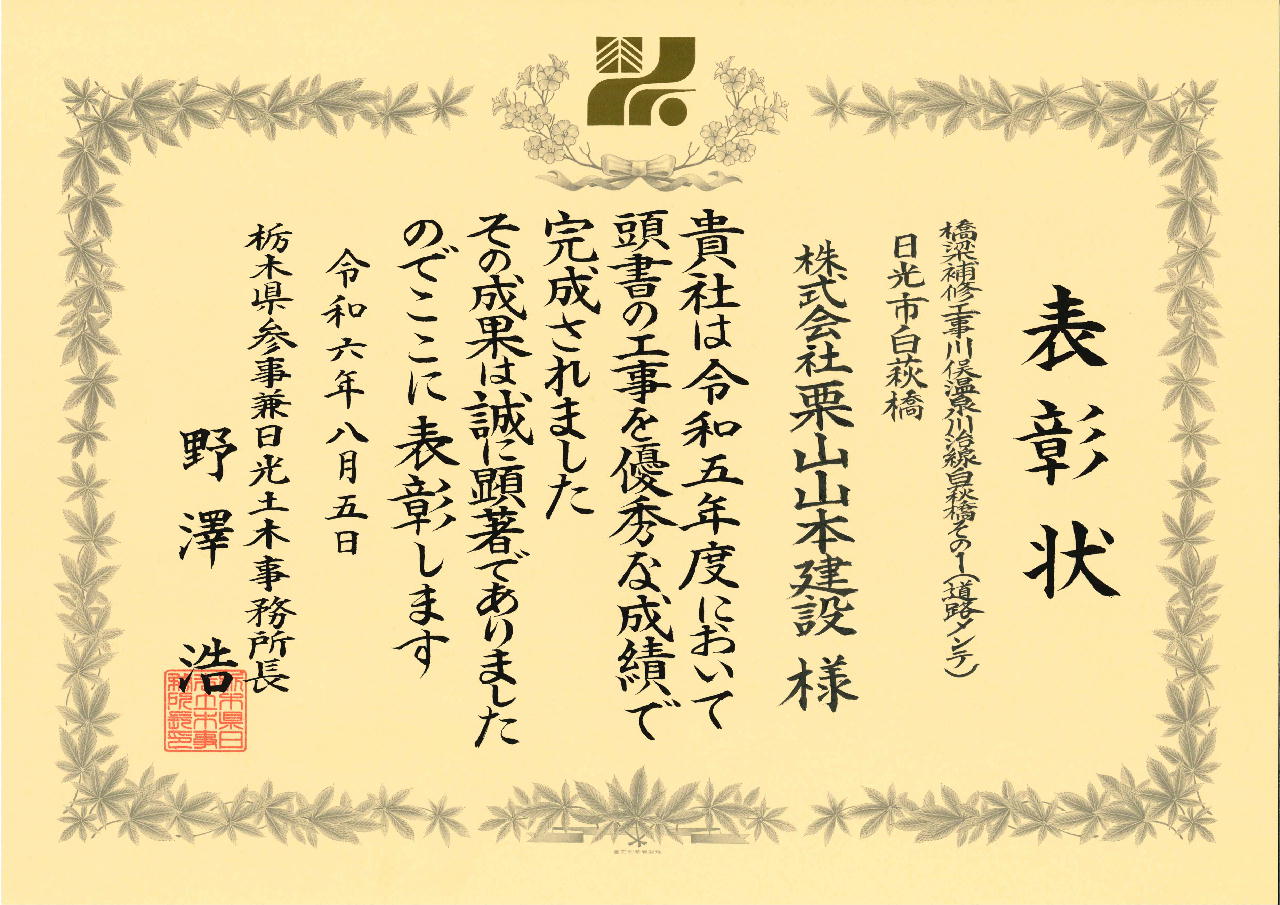 表彰状
橋梁補修工事川俣温泉川治線白萩橋その一(道路メンテ)
日光市白萩橋
株式会社栗山山本建設 様
貴社は令和五年度において
頭書の工事を優秀な成績で
完成されました
その成果は誠に顕著でありました
のでここに表彰します
令和六年八月五日
栃木県参事兼日光土木事務所長
野澤 浩